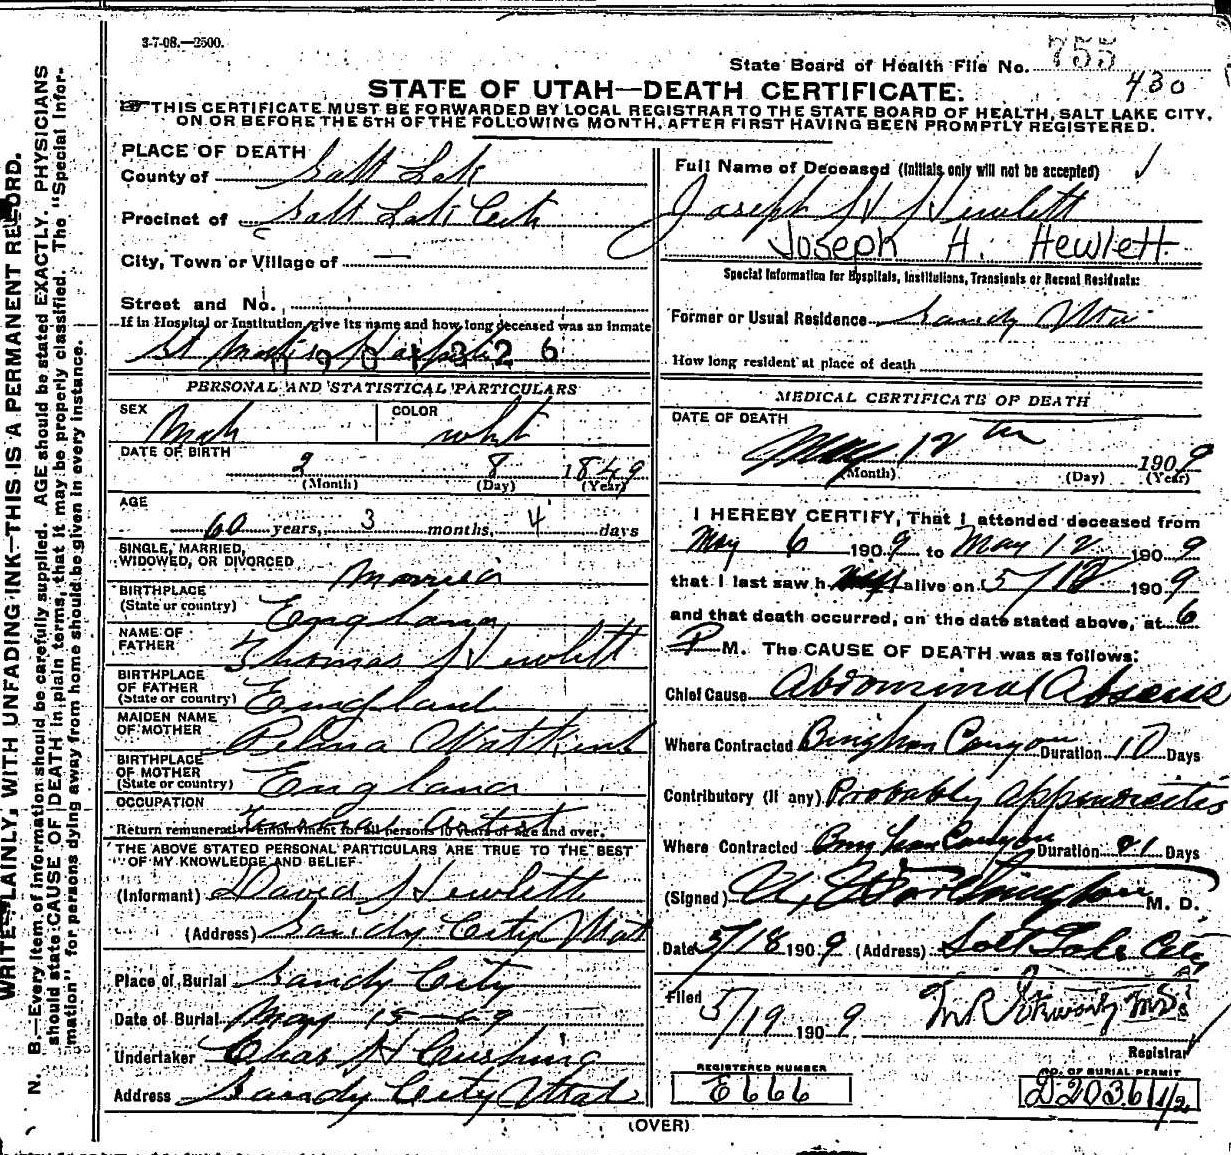 3-7-08.—2500.
State Board of Health File No. 755
430
STATE OF UTAH—DEATH CERTIFICATE.
THIS CERTIFICATE MUST BE FORWARDED BY LOCAL REGISTRAR TO THE STATE BOARD OF HEALTH, SALT LAKE CITY,
ON OR BEFORE THE 5TH OF THE FOLLOWING MONTH, AFTER FIRST HAVING BEEN PROMPTLY REGISTERED.
WRITE PLAINLY, WITH UNFADING INK—THIS IS A PERMANENT RECORD.
N. B.—Every item of information should be carefully supplied. AGE should be stated EXACTLY. PHYSICIANS
should state CAUSE OF DEATH in plain terms, that it may be properly classified. The "Special Infor-
mation" for persons dying away from home should be given in every instance.
PLACE OF DEATH
County of Salt Lake
Precinct of Salt Lake City
City, Town or Village of —
Street and No.
If in Hospital or Institution, give its name and how long deceased was an inmate
St Mark's Hospital
0901326
PERSONAL AND STATISTICAL PARTICULARS
SEX Male COLOR white
DATE OF BIRTH
2 8 1849
(Month) (Day) (Year)
AGE
60 years, 3 months, 4 days
SINGLE, MARRIED,
WIDOWED, OR DIVORCED Married
BIRTHPLACE
(State or country) England
NAME OF
FATHER Thomas Hewlett
BIRTHPLACE
OF FATHER
(State or country) England
MAIDEN NAME
OF MOTHER Watkins
BIRTHPLACE
OF MOTHER
(State or country) England
OCCUPATION
Artist
Return remunerative employment for all persons 10 years of age and over.
THE ABOVE STATED PERSONAL PARTICULARS ARE TRUE TO THE BEST
OF MY KNOWLEDGE AND BELIEF
(Informant) David Hewlett
(Address) Sandy City Utah
Place of Burial Sandy City
Date of Burial May 15-09
Undertaker Chas H Cushing
Address Sandy City Utah
Full Name of Deceased (Initials only will not be accepted)
Joseph H Hewlett
Joseph H. Hewlett
Special Information for Hospitals, Institutions, Transients or Recent Residents:
Former or Usual Residence Sandy Uta
How long resident at place of death
MEDICAL CERTIFICATE OF DEATH
DATE OF DEATH
May 12 th 1909
(Month) (Day) (Year)
I HEREBY CERTIFY, That I attended deceased from
May 6 1909 to May 12 1909
that I last saw h alive on 5/12 1909
and that death occurred, on the date stated above, at 6
P M. The CAUSE OF DEATH was as follows:
Chief Cause Abdominal Abscess
Where Contracted Bingham Canyon Duration 10 Days
Contributory (if any) Probably appendicitis
Where Contracted Bingham Canyon Duration 21 Days
(Signed) Worthington M. D.
Date 5/18 1909 (Address) Salt Lake City
Filed 5/19 1909
Registrar
REGISTERED NUMBER
E666
NO. OF BURIAL PERMIT
D2036 1/2
(OVER)